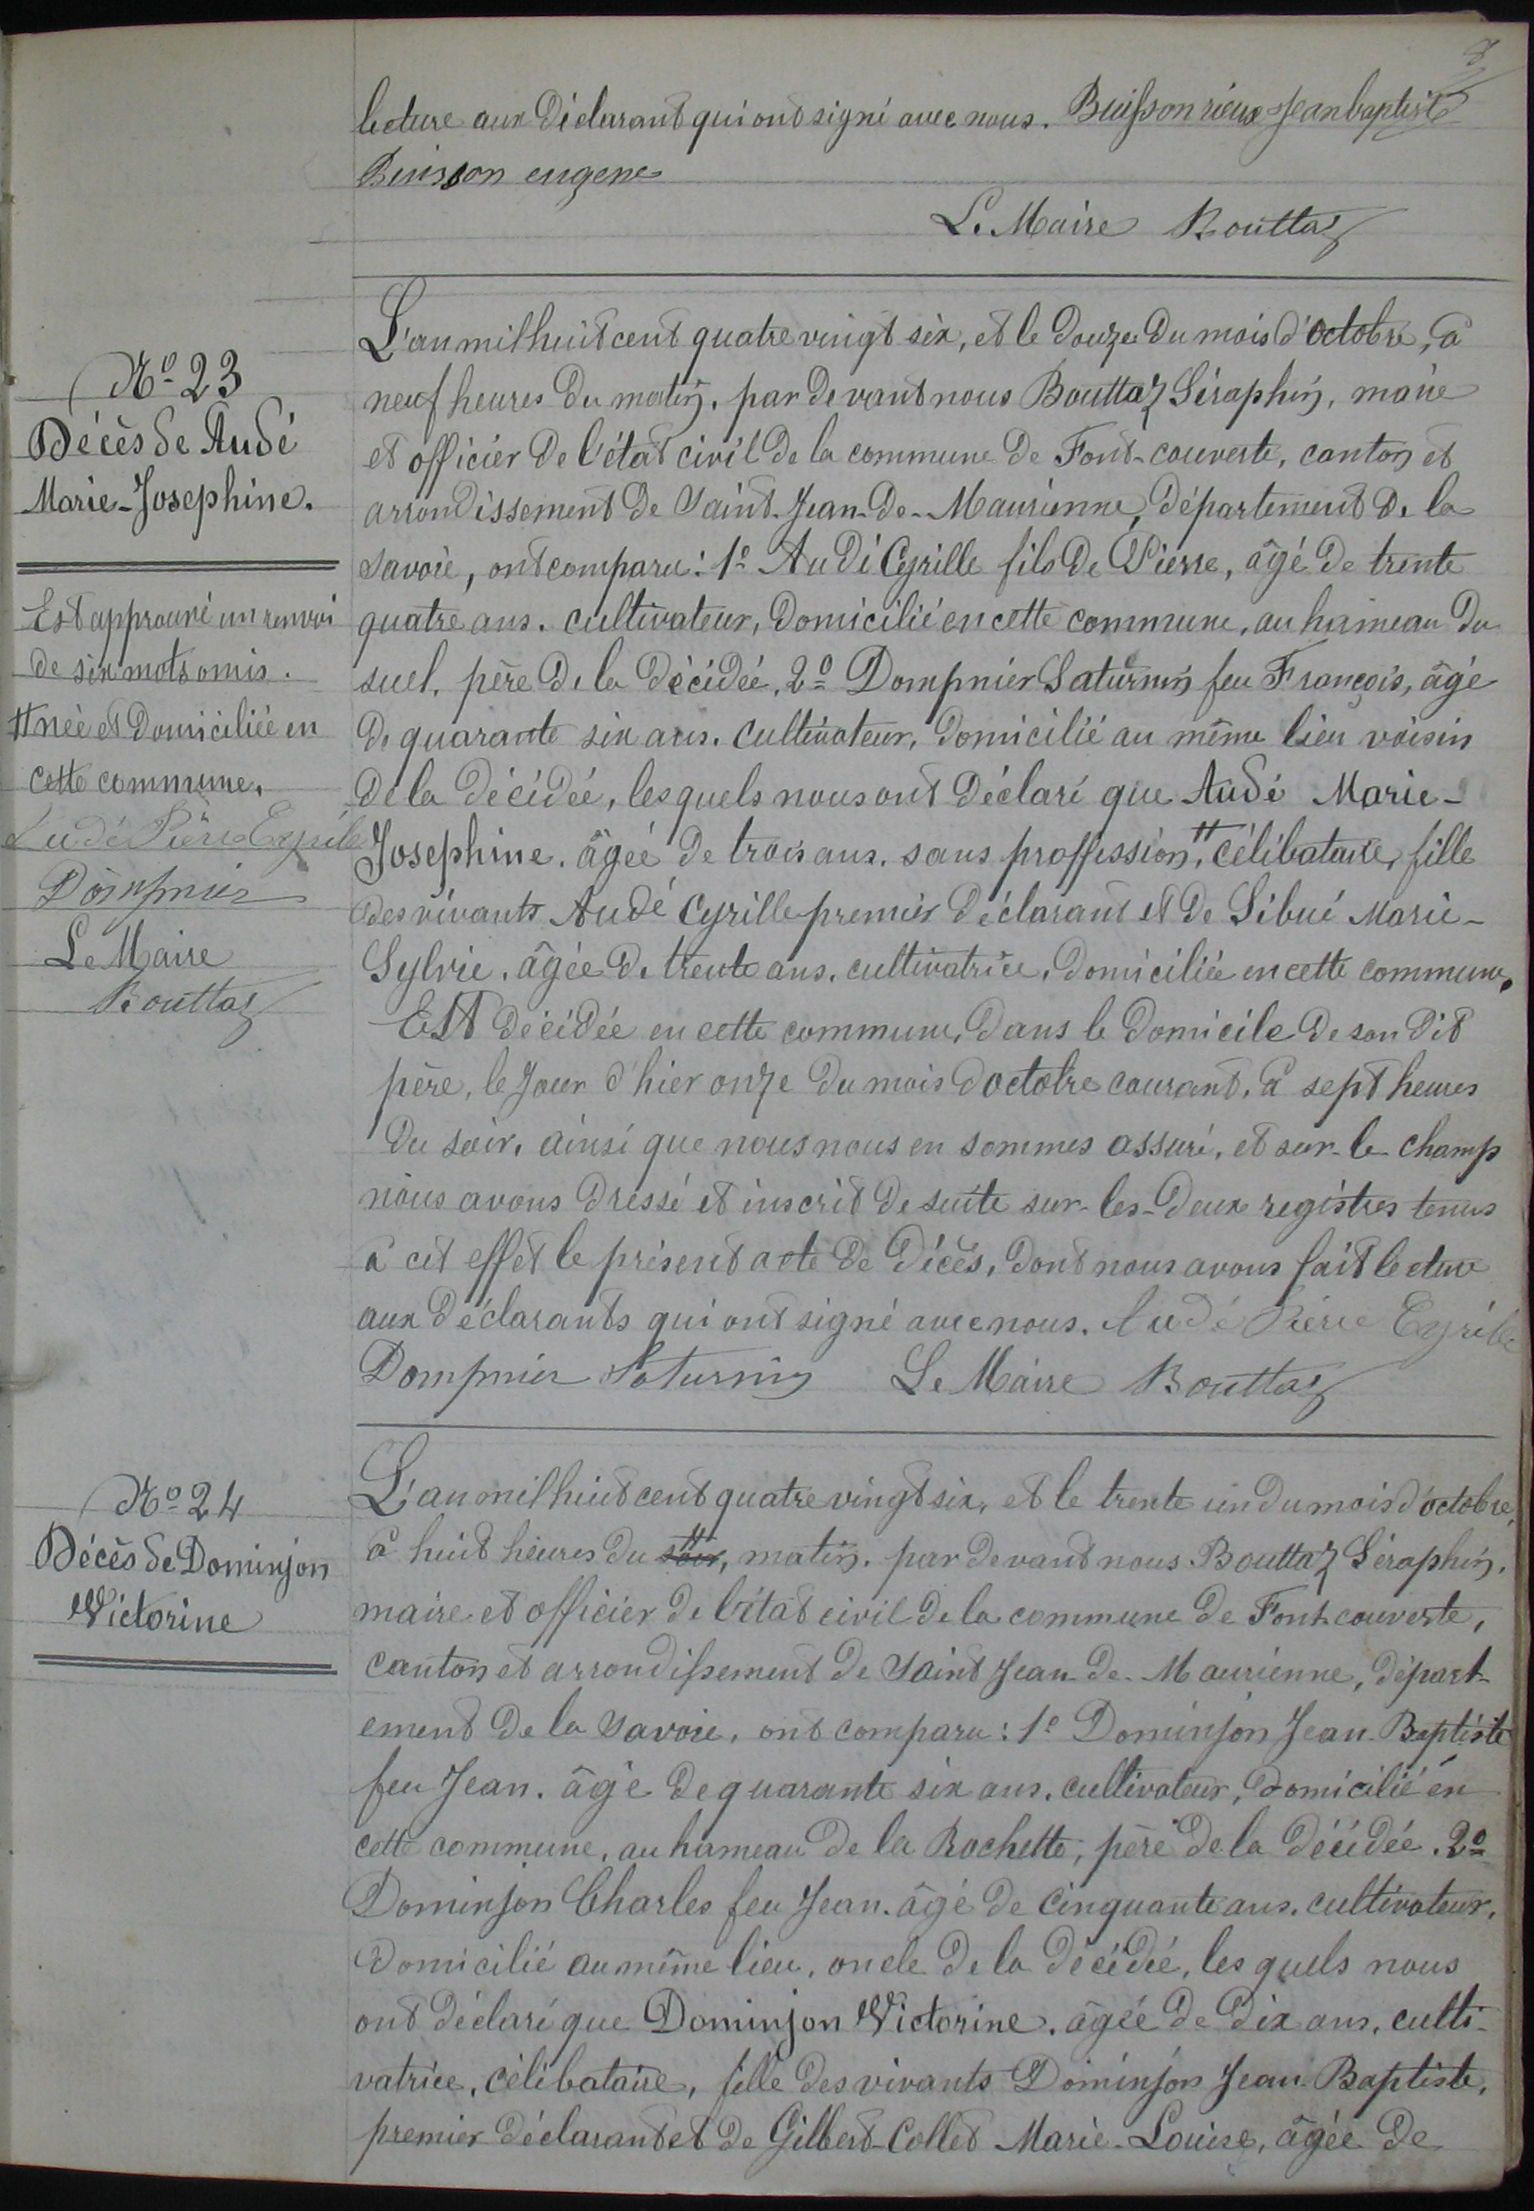 lecture aux déclarant qui ont signé avec nous. Buisson rieux Jean baptiste
Buisson eugene
Le Maire Bouttaz
N° 23
Décès de Audé
Marie-Josephine.
Est approuvé un renvoi
de six mots omis.
# née et domiciliée en
cette commune.
Audé Pierre Cyrille
Dompnier
Le Maire
Bouttaz
L'an mil huit cent quatre vingt six, et le douze du mois d'octobre, à
neuf heures du matin. par devant nous Bouttaz Séraphin, maire
et officier de l'état civil de la commune de Font-couverte, canton et
arrondissement de Saint-Jean-de-Maurienne, département de la
Savoie, ont comparu: 1° Audé Cyrille fils de Pierre, âgé de trente
quatre ans. cultivateur, domicilié en cette commune, au hameau du
suel, père de la décédée, 2° Dompnier Saturnin feu François, âgé
de quarante six ans. cultivateur, domicilié au même lieu voisin
de la décédée, lesquels nous ont déclaré que Audé Marie-
Josephine. âgée de trois ans. sans proffession, # célibataire, fille
des vivants Audé Cyrille premier déclarant et de Sibué Marie-
Sylvie. âgée de trente ans. cultivatrice, domiciliée en cette commune.
Est décédée en cette commune, dans le domicile de son dit
père, le jour d'hier onze du mois d'octobre courant, à sept heures
du soir, ainsi que nous nous en sommes assuré, et sur-le-champ
nous avons dressé et inscrit de suite sur-les-deux registres tenus
à cet effet le présent acte de décès, dont nous avons fait lecture
aux déclarants qui ont signé avec nous. Audé Pierre Cyrille
Dompnier Saturnin Le Maire Bouttaz
N° 24
Décès de Dominjon
Victorine
L'an mil huit cent quatre vingt six, et le trente un du mois d'octobre,
à huit heures du soir, matin. par devant nous Bouttaz Séraphin.
maire et officier de l'état civil de la commune de Fontcouverte,
canton et arrondissement de Saint Jean-de-Maurienne, départ-
ement de la Savoie, ont comparu: 1° Dominjon Jean-Baptiste
feu Jean. âgé de quarante six ans. cultivateur, domicilié en
cette commune, au hameau de la Rochette, père de la décédée. 2°
Dominjon Charles feu Jean. âgé de cinquante ans. cultivateur,
domicilié au même lieu, oncle de la décédée, les quels nous
ont déclaré que Dominjon Victorine. âgée de dix ans, culti-
vatrice, célibataire, fille des vivants Dominjon Jean-Baptiste,
premier déclarant et de Gilbert-Collet Marie-Louise, âgée de